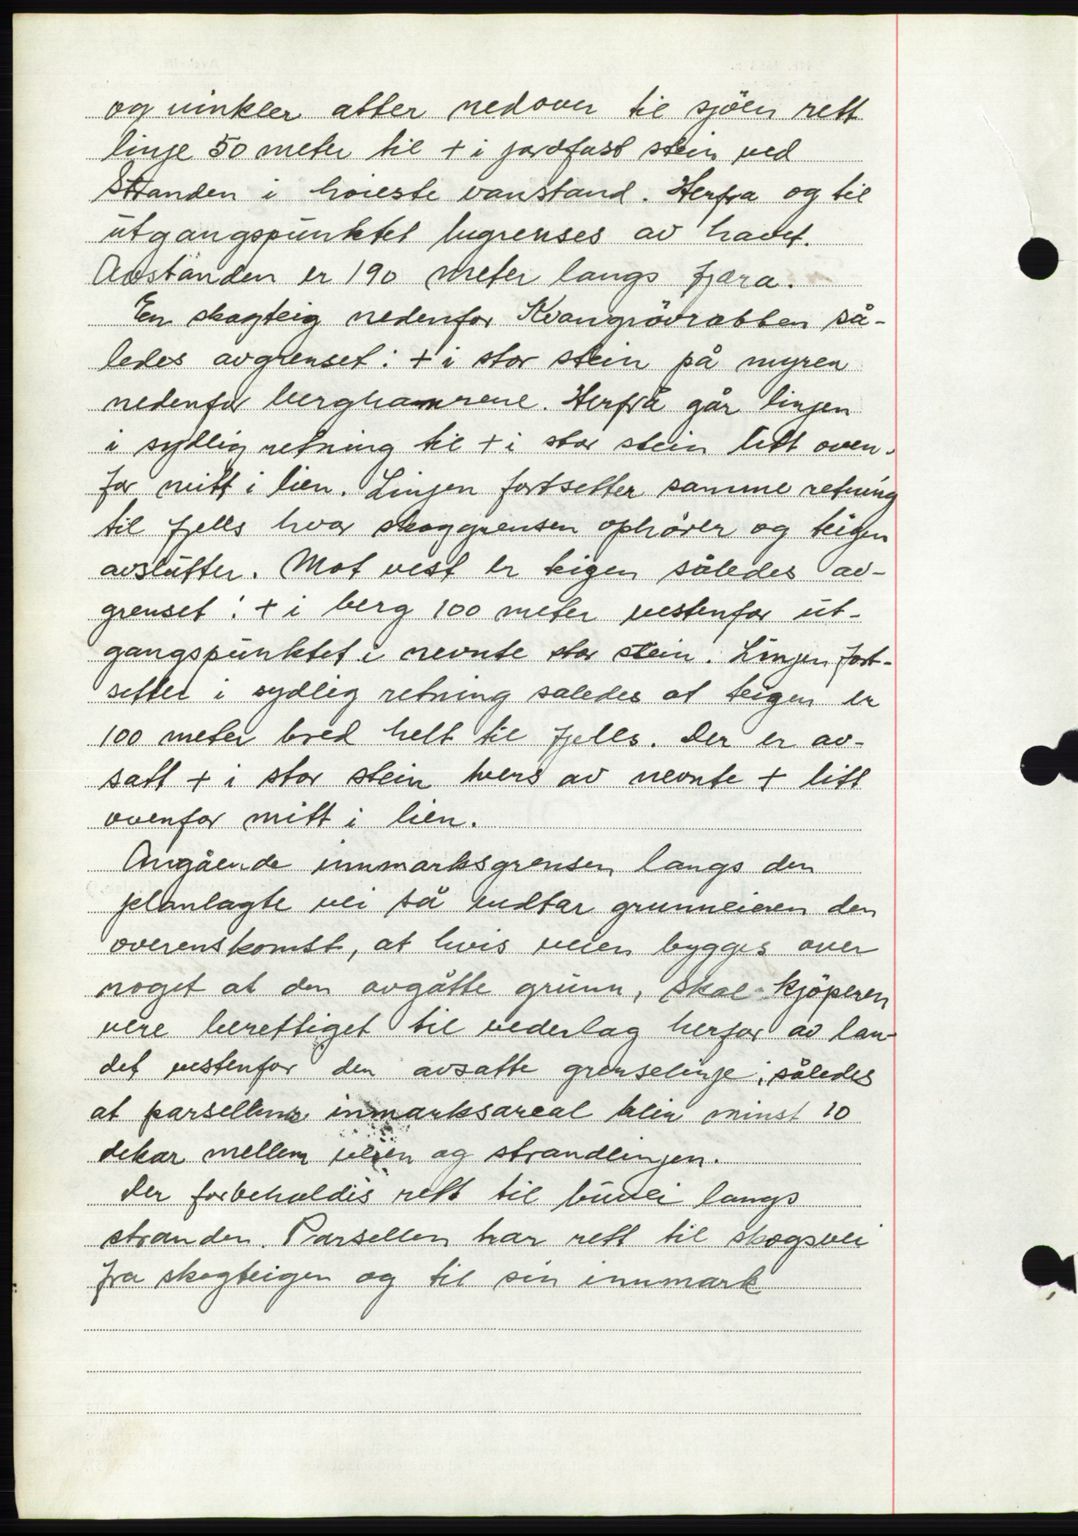 og vinkler atter nedover til sjöen rett
linje 50 meter til + i jordfast stein ved
Stranden i höieste vanstand. Herfra og til
utgangspunktet begrenses av havet.
Avstanden er 190 meter langs fjæra.
En skogteig nedenfor Kvangrövrabben så-
ledes avgrenset: + i stor stein på myren
nedenfor berghamrene. Herfrå går linjen
i sydlig retning til + i stor stein litt oven-
for mitt i lien. Linjen fortsetter samme retning
til fjells hvor skoggrensen ophörer og teigen
avslutter. Mot vest er teigen således av-
grenset: + i berg 100 meter vestenfor ut-
gangspunktet i nevnte stor stein. Linjen fort-
setter i sydlig retning saledes at teigen er
100 meter bred helt til fjells. Der er av-
satt + i stor stein tvers av nevnte + litt
ovenfor mitt i lien.
Angående innmarksgrensen langs den
planlagte vei så vedtar grunneieren den
overenskomst, at hvis veien bygges over
noget at den avgåtte grunn, skal kjöperen
vere berettiget til vederlag herfor av lan-
det vestenfor den avsatte grenselinje, således
at parsellens inmarksareal blir minst 10
dekar mellem veien og strandlinjen.
Der forbeholdes rett til buvei langs
stranden. Parsellen har rett til skogsvei
fra skogteigen og til sin innmark